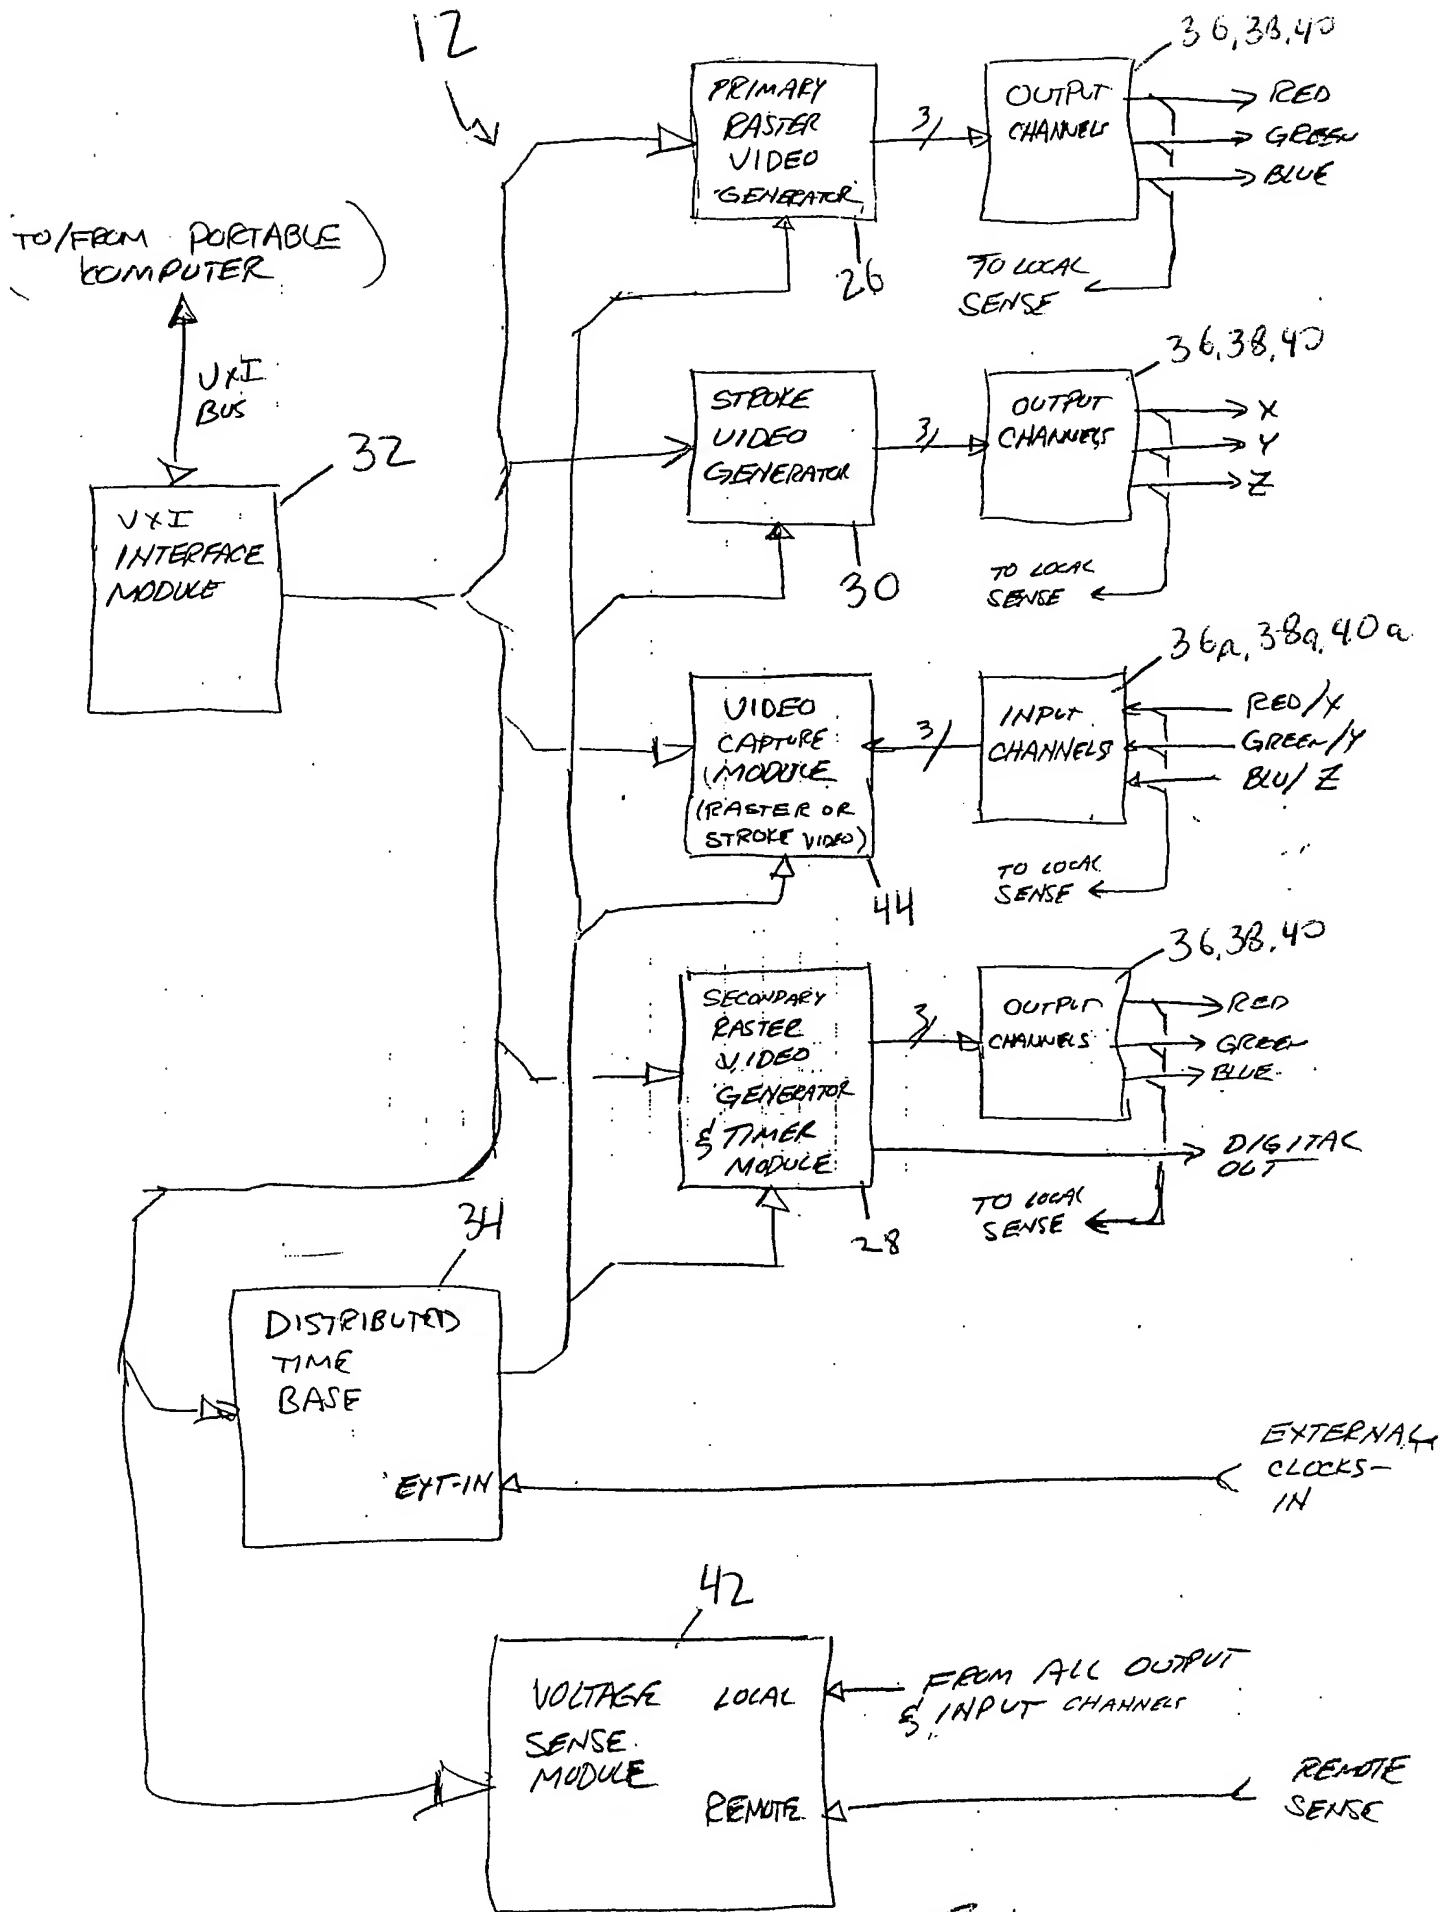 12
36,38,40
PRIMARY
RASTER
VIDEO
GENERATOR
3/
OUTPUT
CHANNELS
RED
GREEN
BLUE
26
TO LOCAL
SENSE
(TO/FROM PORTABLE
COMPUTER)
VXI
BUS
32
VXI
INTERFACE
MODULE
36,38,40
STROKE
VIDEO
GENERATOR
3/
OUTPUT
CHANNELS
X
Y
Z
30
TO LOCAL
SENSE
36a,38a,40a
VIDEO
CAPTURE
MODULE
(RASTER OR
STROKE VIDEO)
3/
INPUT
CHANNELS
RED/X
GREEN/Y
BLU/Z
44
TO LOCAL
SENSE
36,38,40
SECONDARY
RASTER
VIDEO
GENERATOR
& TIMER
MODULE
3/
OUTPUT
CHANNELS
RED
GREEN
BLUE
DIGITAL
OUT
28
TO LOCAL
SENSE
34
DISTRIBUTED
TIME
BASE
EXT-IN
EXTERNAL
CLOCKS-
IN
42
VOLTAGE
SENSE
MODULE
LOCAL
FROM ALL OUTPUT
& INPUT CHANNELS
REMOTE
REMOTE
SENSE